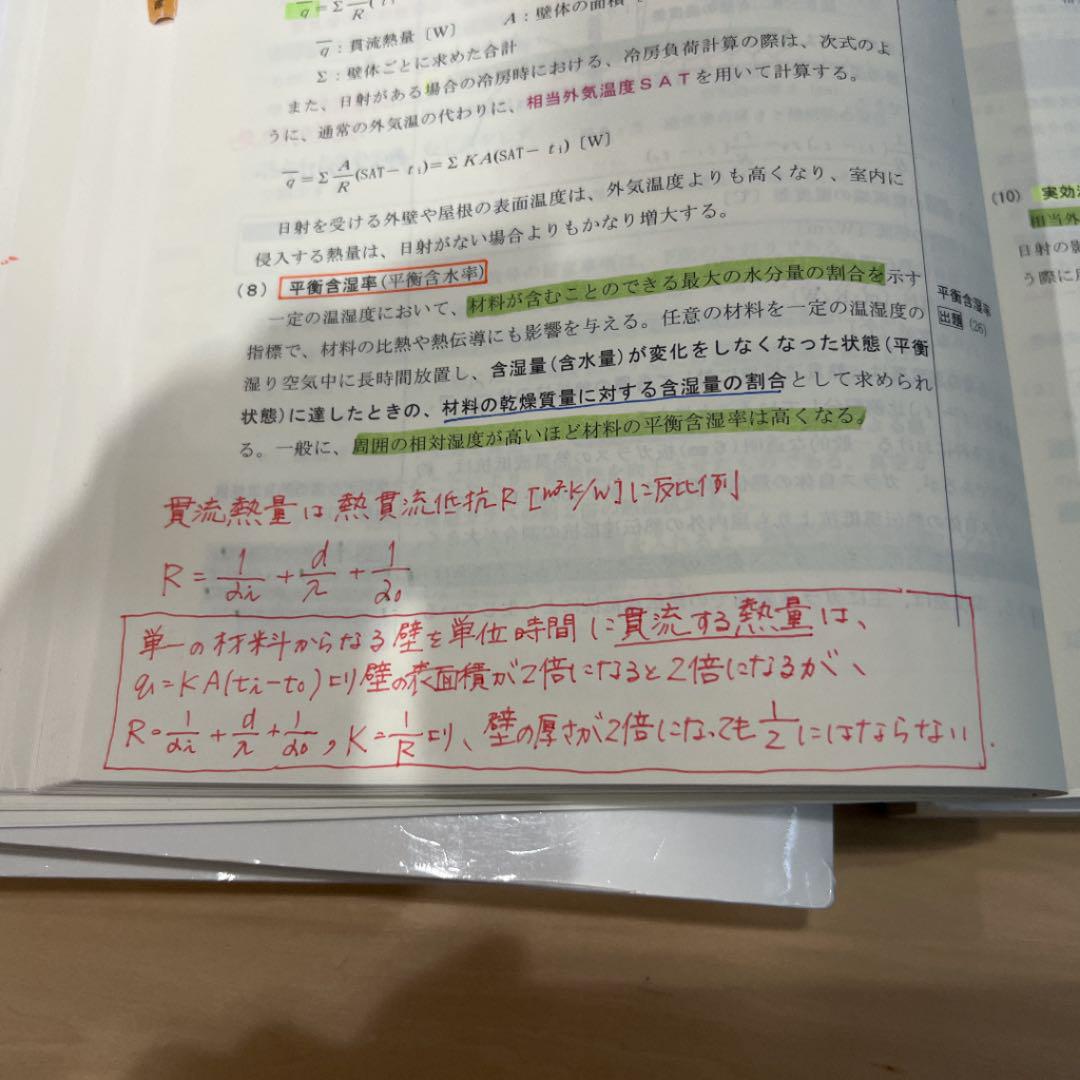 q̄=Σ A/R (t
q̄：貫流熱量〔W〕 A：壁体の面積〔
Σ：壁体ごとに求めた合計
また、日射がある場合の冷房時における、冷房負荷計算の際は、次式のよ
うに、通常の外気温の代わりに、相当外気温度SATを用いて計算する。
q̄=Σ A/R (SAT− ti)=Σ KA(SAT− ti)〔W〕
日射を受ける外壁や屋根の表面温度は、外気温度よりも高くなり、室内に
侵入する熱量は、日射がない場合よりもかなり増大する。
(8) 平衡含湿率(平衡含水率)
一定の温湿度において、材料が含むことのできる最大の水分量の割合を示す
指標で、材料の比熱や熱伝導にも影響を与える。任意の材料を一定の温湿度の
湿り空気中に長時間放置し、含湿量(含水量)が変化をしなくなった状態(平衡
状態)に達したときの、材料の乾燥質量に対する含湿量の割合として求められ
る。一般に、周囲の相対湿度が高いほど材料の平衡含湿率は高くなる。
平衡含湿率
出題(26)
貫流熱量は熱貫流低抗R[m²·K/W]に反比例
R = 1/αi + d/λ + 1/αo
単一の材料からなる壁を単位時間に貫流する熱量は、
q=KA(ti−to)より壁の表面積が2倍になると2倍になるが、
R=1/αi + d/λ + 1/αo , K=1/Rより、壁の厚さが2倍になっても1/2にはならない.
(10) 実効
相当外
日射の影
う際に